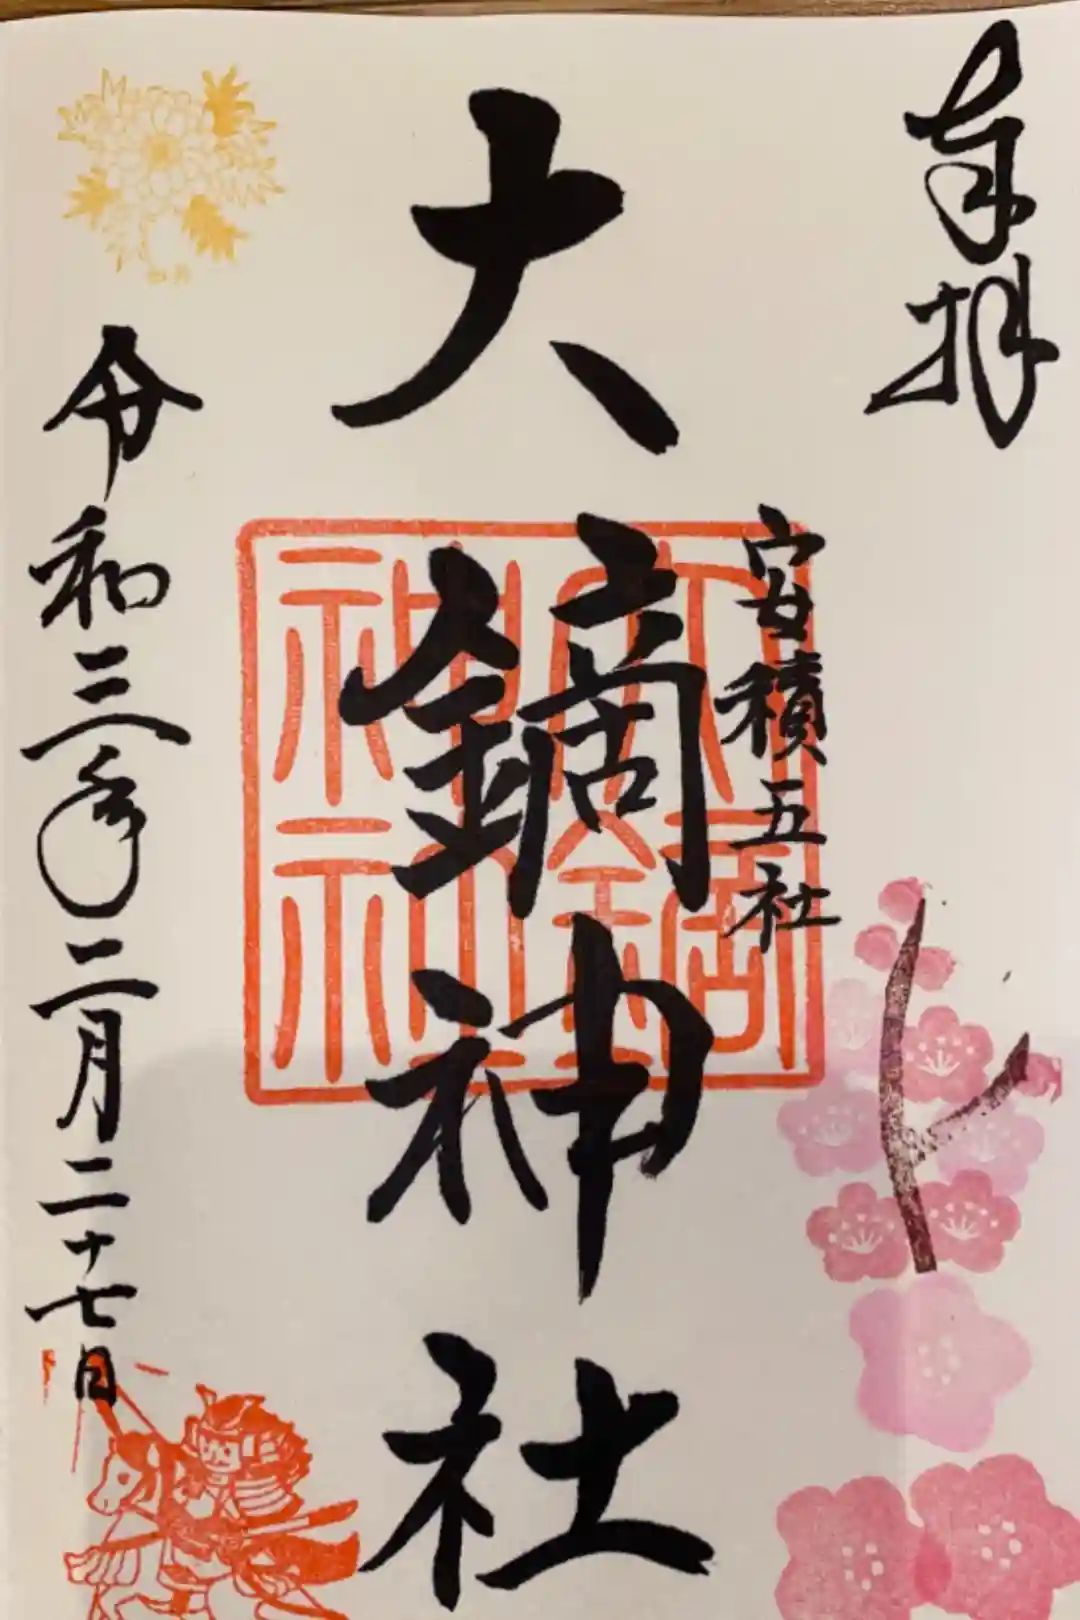 奉拝
安積五社
大鏑神社
令和三年二月二十七日